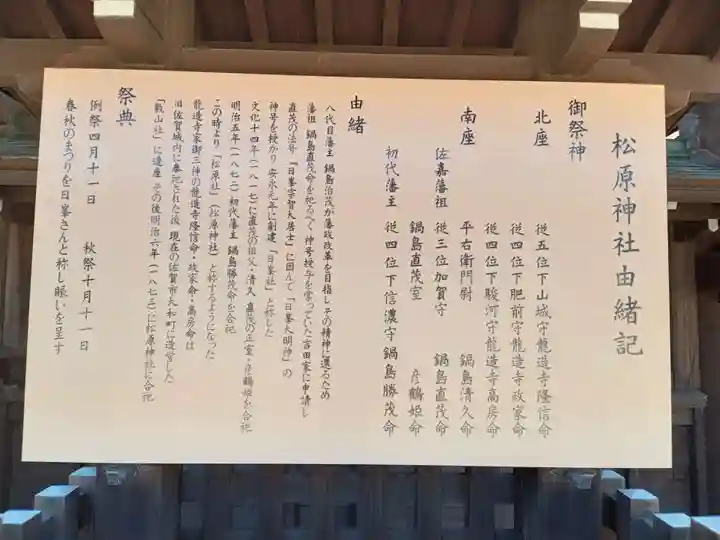 松原神社由緒記
御祭神
北座　従五位下山城守龍造寺隆信命
従四位下肥前守龍造寺政家命
従四位下駿河守龍造寺高房命
南座　平右衛門尉　鍋島清久命
佐嘉藩祖　従三位加賀守　鍋島直茂命
鍋島直茂室　彦鶴姫命
初代藩主　従四位下信濃守鍋島勝茂命
由緒
八代目藩主 鍋島治茂が藩政改革を目指し その精神に還るため
藩祖 鍋島直茂命を祀るべく 神号授与を掌っていた吉田家に申請し
直茂の法号『日峯宗智大居士』に因んで「日峯大明神」の
神号を授かり 安永元年に創建「日峯社」と称した
文化十四年(一八一七)に直茂の祖父・清久 直茂の正室・彦鶴姫を合祀
明治五年(一八七二)初代藩主 鍋島勝茂命を合祀
この時より「松原社」(松原神社)と称するようになった
龍造寺家御三神の龍造寺隆信命・政家命・高房命は
旧佐賀城内に奉祀された後 現在の佐賀市大和町に造営した
「戴山社」に遷座 その後明治六年(一八七三)に松原神社に合祀
祭典
例祭四月十一日　秋祭十月十一日
春秋のまつりを日峯さんと称し賑いを呈す